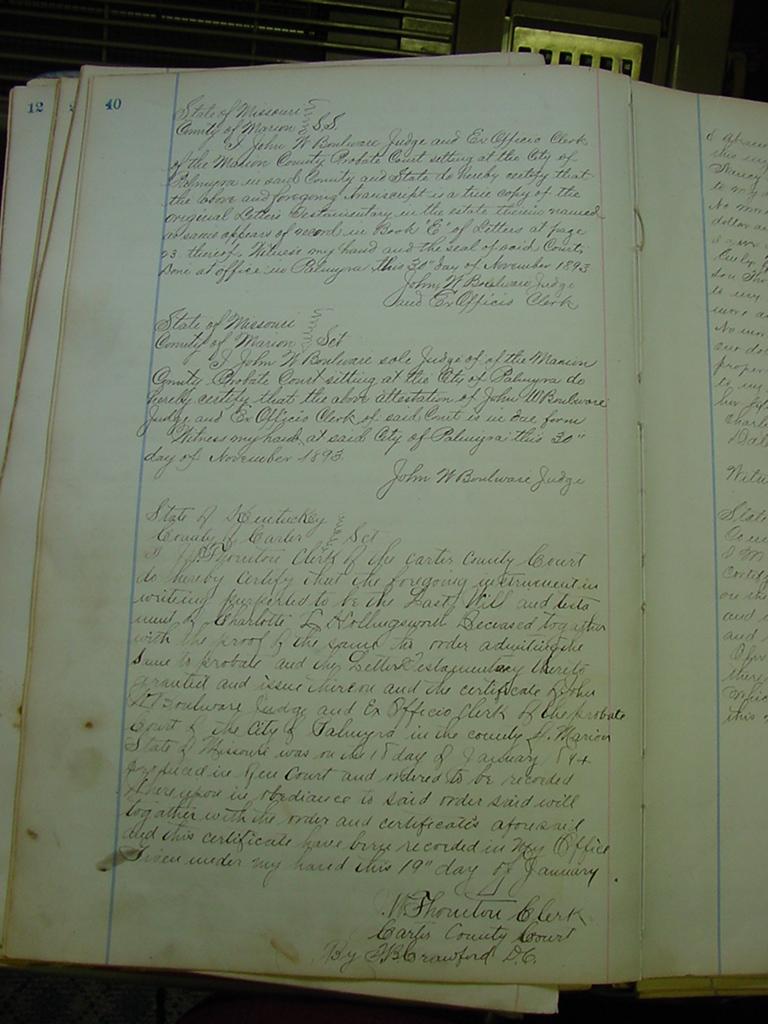 12
40
State of Missouri
County of Marion SS.
I John W Boulware Judge and Ex Officio Clerk
of the Marion County Probate Court setting at the City of
Palmyra in said County and State do hereby certify that
the above and foregoing transcript is a true copy of the
original Letters Testamentary in the estate therein named
as same appears of record in Book E" of Letters at page
23 thereof. Witness my hand and the seal of said Court
Done at office in Palmyra this 30" day of November 1893
John W Boulware Judge
and Ex Officio Clerk
State of Missouri
County of Marion Sct
I John W Boulware sole Judge of of the Marion
County Probate Court sitting at the City of Palmyra do
hereby certify that the above attestation of John W Boulware
Judge and Ex Officio Clerk of said Court is in due form
Witness my hand at said City of Palmyra this 30"
day of November 1893.
John W Boulware Judge
State of Kentucky
County of Carter Sct
I Thornton Clerk of the carter County Court
do hereby certify that the foregoing instrument in
writing purported to be the Last Will and testa
ment of Charlotte L Hollingsworth Deceased together
with the proof of the same the order admitting the
Same to probate and the Letter Testamentary thereto
granted and issue thereon and the certificate of John
W Boulware Judge and Ex Officio Clerk of the probate
Court of the City of Palmyra in the county of Marion
State of Missouri was on the 18 day of January 1894
produced in Open Court and ordered to be recorded
Whereupon in obediance to said order said will
together with the order and certificates aforesaid
and this certificate have been recorded in My Office
Given under my hand this 19" day of January
Thornton Clerk
Carter County Court
By Crawford D.C.